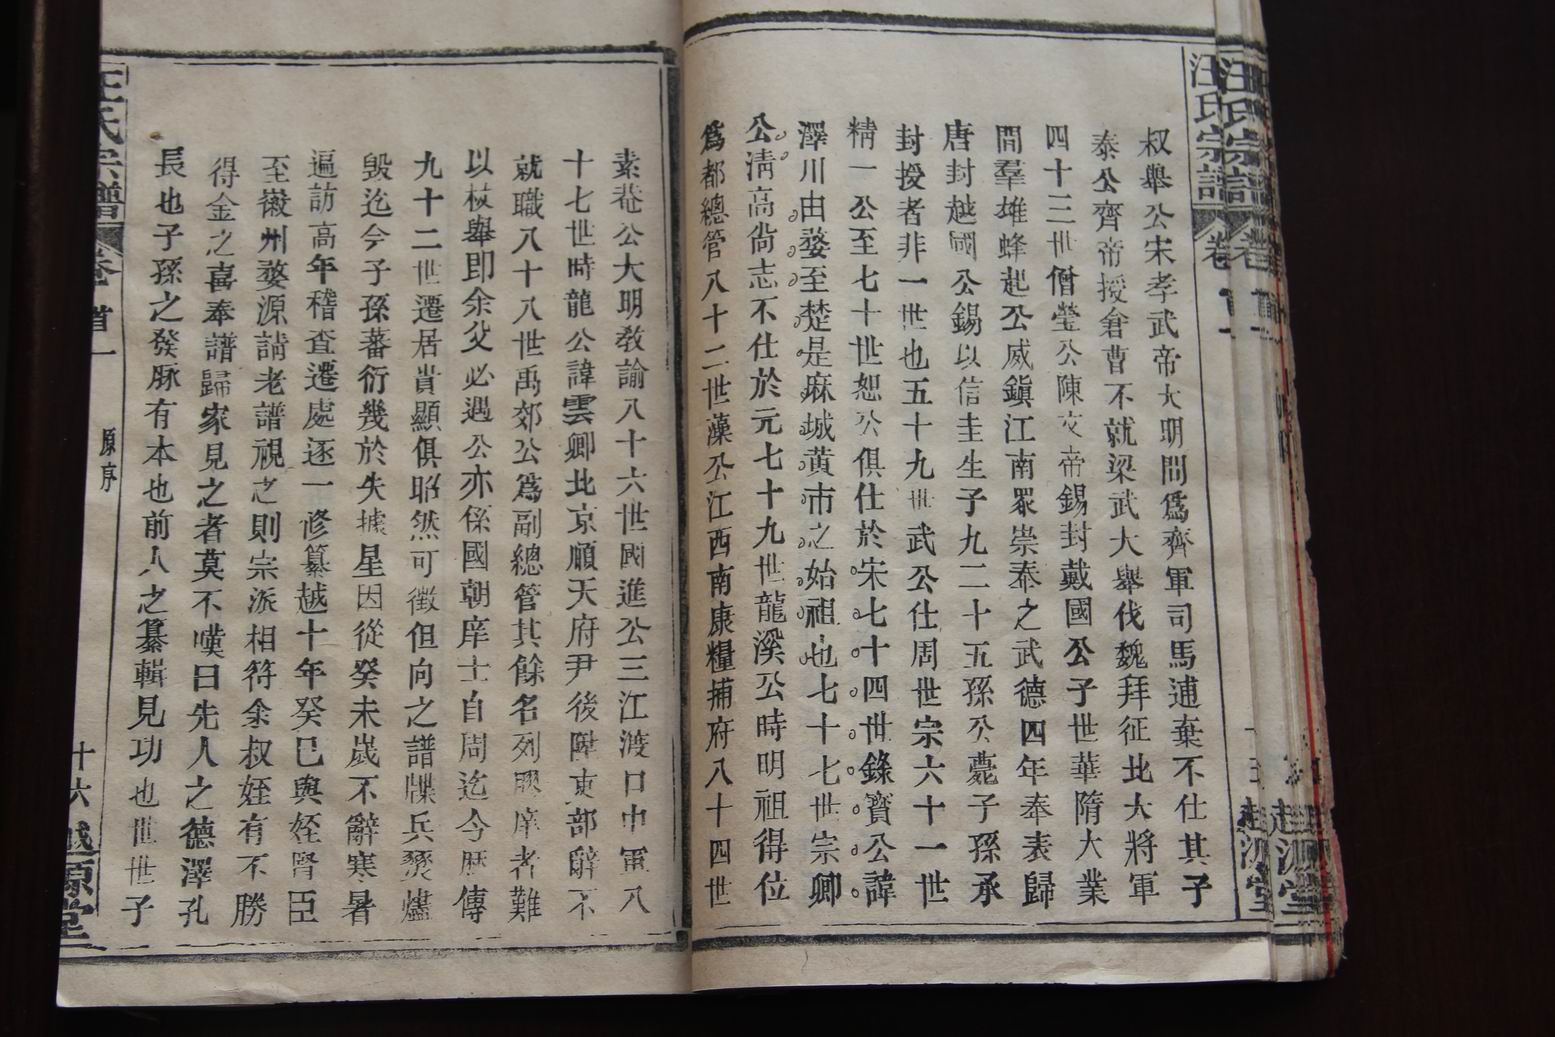 汪氏宗譜
卷首一
越源堂
叔舉公宋孝武帝大明間爲齊軍司馬逋棄不仕其子
泰公齊帝授倉曹不就梁武大舉伐魏拜征北大將軍
四十三世僧瑩公陳文帝錫封戴國公子世華隋大業
間羣雄蜂起公威鎭江南眾崇奉之武德四年奉表歸
唐封越國公錫以信圭生子九二十五孫公薨子孫承
封授者非一世也五十九世武公仕周世宗六十一世
精一公至七十世恕公俱仕於宋七十四世錄寶公諱
澤川由婺至楚是麻城黃市之始祖也七十七世宗卿
公淸高尙志不仕於元七十九世龍溪公時明祖得位
爲都總管八十二世藻公江西南康糧捕府八十四世
素菴公大明敎諭八十六世國進公三江渡口中軍八
十七世時龍公諱雲卿北京順天府尹後陞吏部辭不
就職八十八世禹郊公爲副總管其餘名列膠庠者難
以枚舉即余父必遇公亦係國朝庠士自周迄今歷傳
九十二世遷居貴顯俱昭然可徵但向之譜牒兵燹燼
毀迄今子孫蕃衍幾於失據星因從癸未歲不辭寒暑
遍訪高年稽查遷處逐一修纂越十年癸巳與姪腎臣
至徽州婺源請老譜視之則宗派相符余叔姪有不勝
得金之喜奉譜歸家見之者莫不嘆曰先人之德澤孔
長也子孫之發脉有本也前人之纂輯見功也世世子
汪氏宗譜
卷首一
原序
十六
越源堂